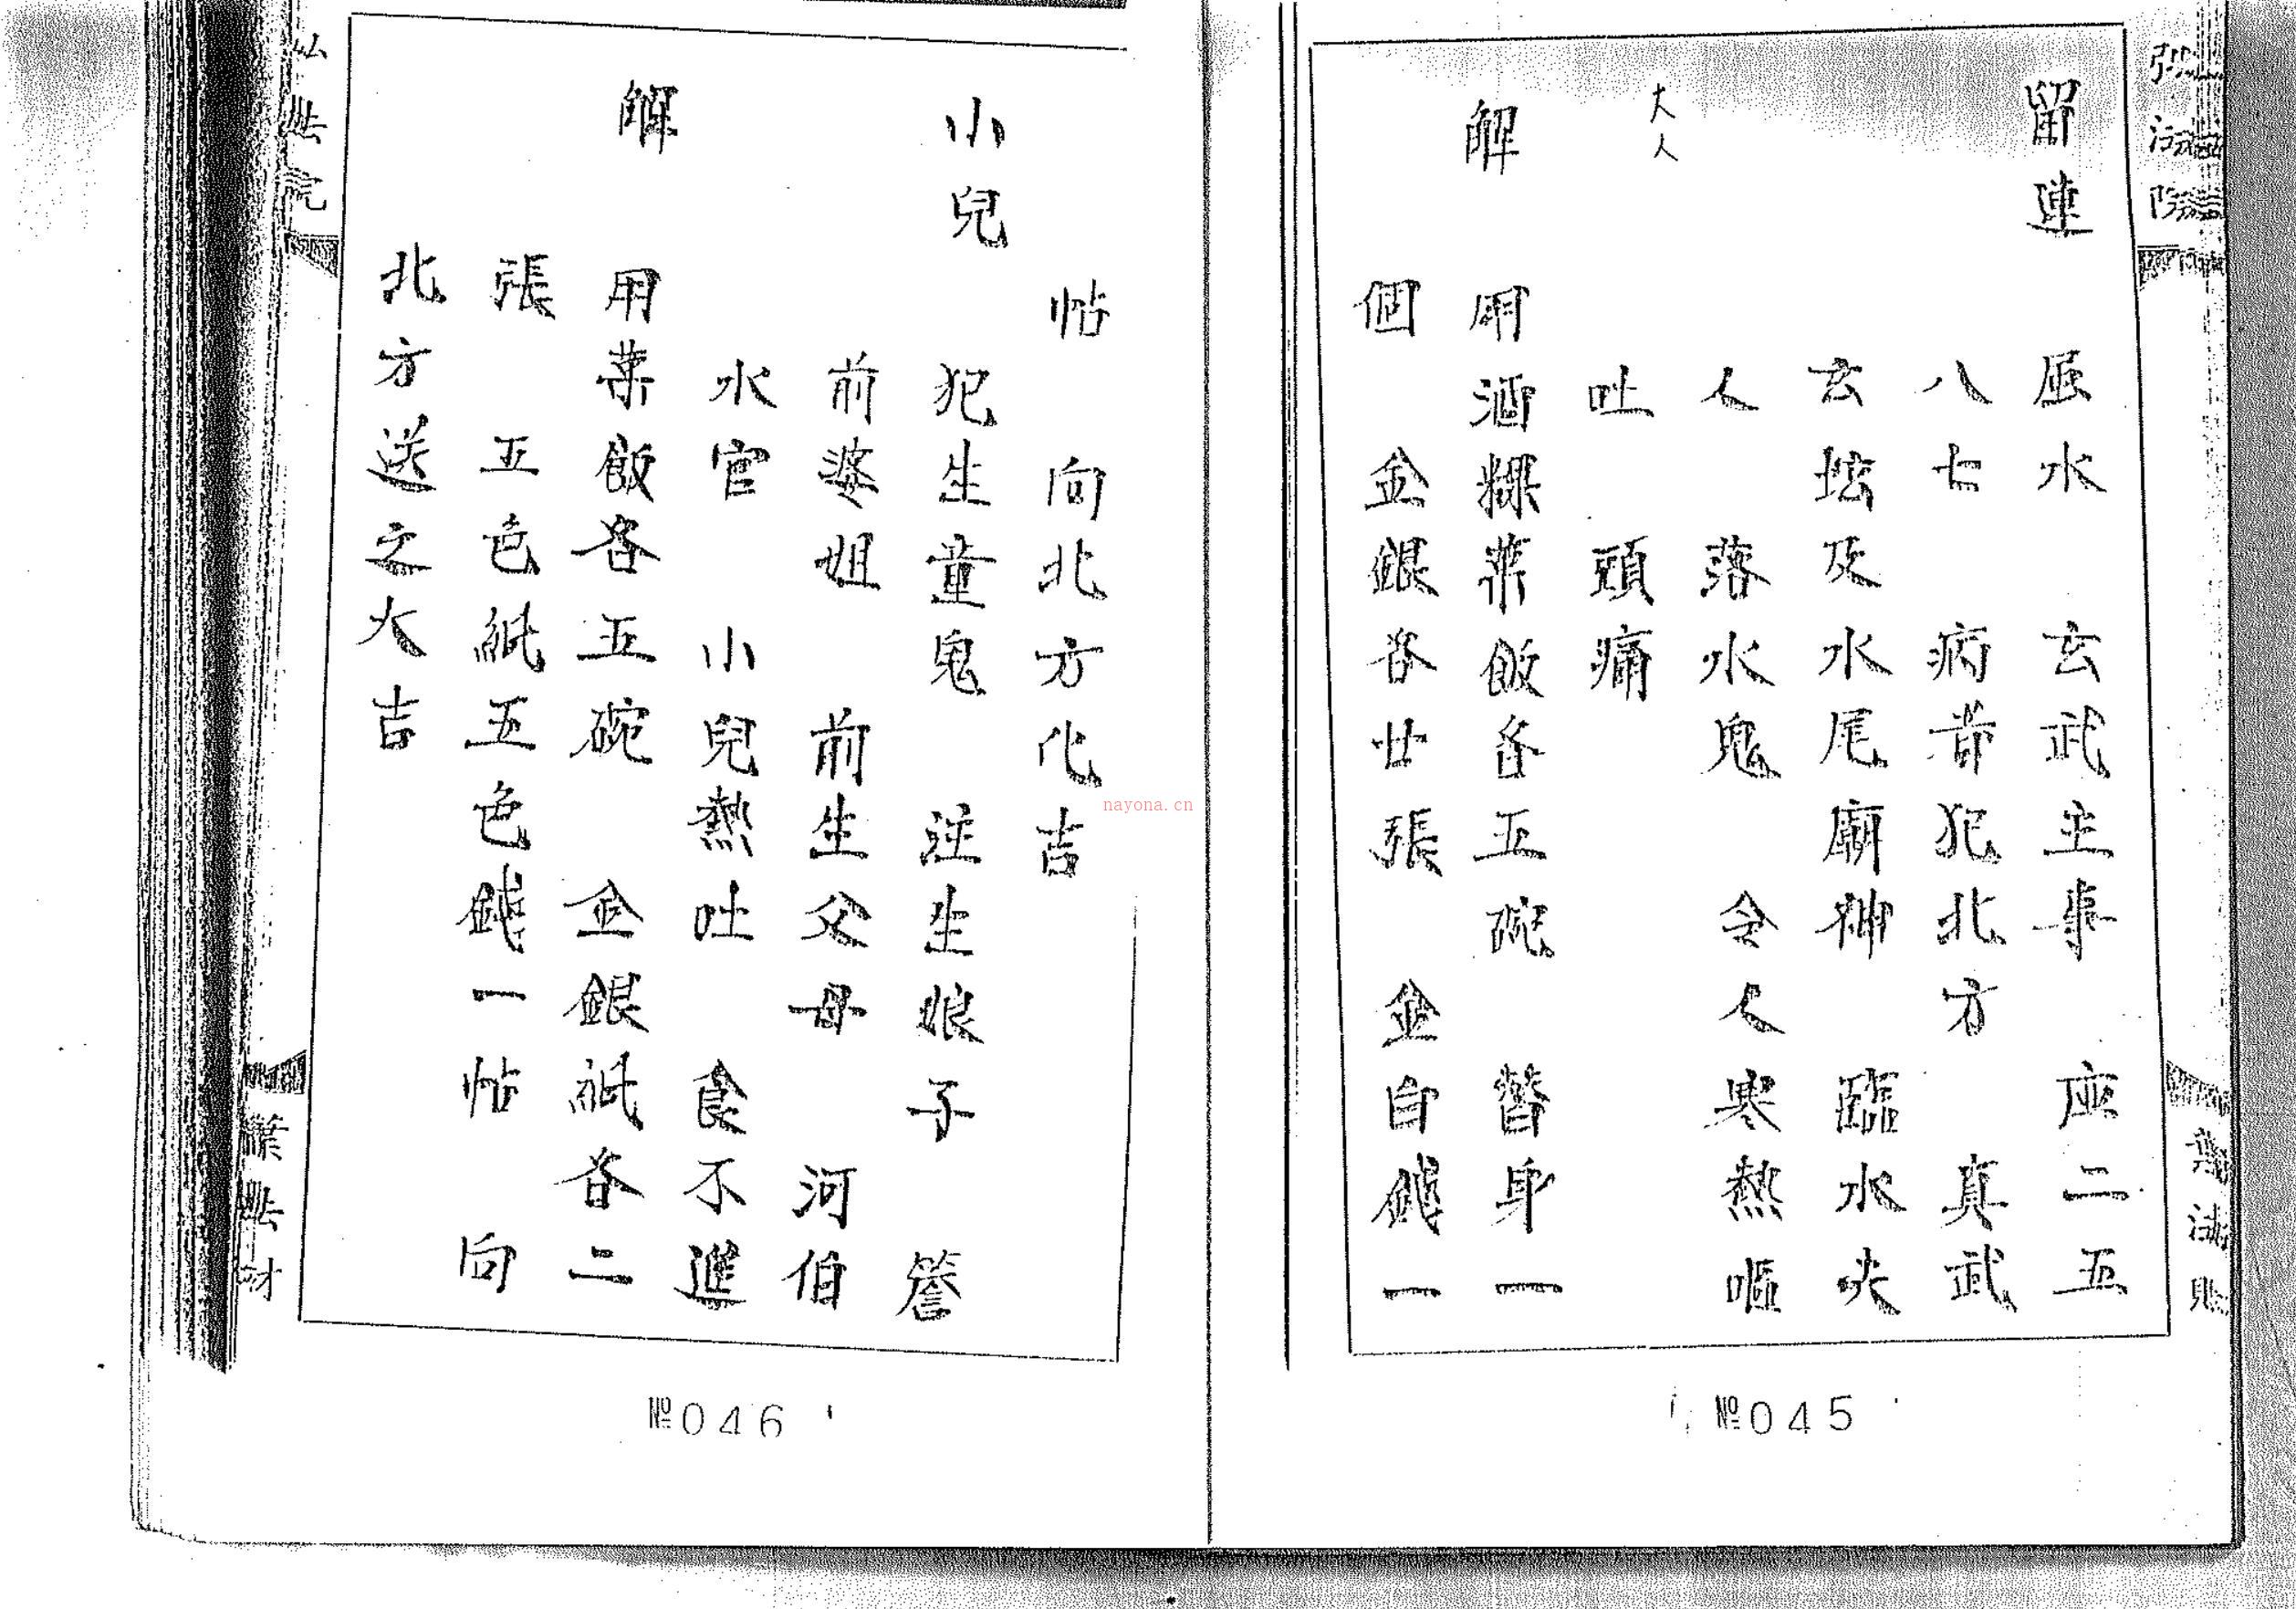 弘法院
留連 屈水 玄武主事 应二五
八七 病者犯北方 真武
玄坛及水尾廟神 臨水夫
人 落水鬼 令人寒熱嘔
大人
吐 頭痛
解 用酒粿菜飯各五碗 替身一
個 金銀各廿張 金白錢一
葉法財
№045
帖 向北方化吉
小兒 犯生童鬼 註生娘子
前婆姐 前生父母 河伯
水官 小兒熱吐 食不進
解 用菜飯各五碗 金銀紙各二
張 五色紙五色錢一帖 向
北方送之大吉
弘法院
葉法財
№046
nayona.cn